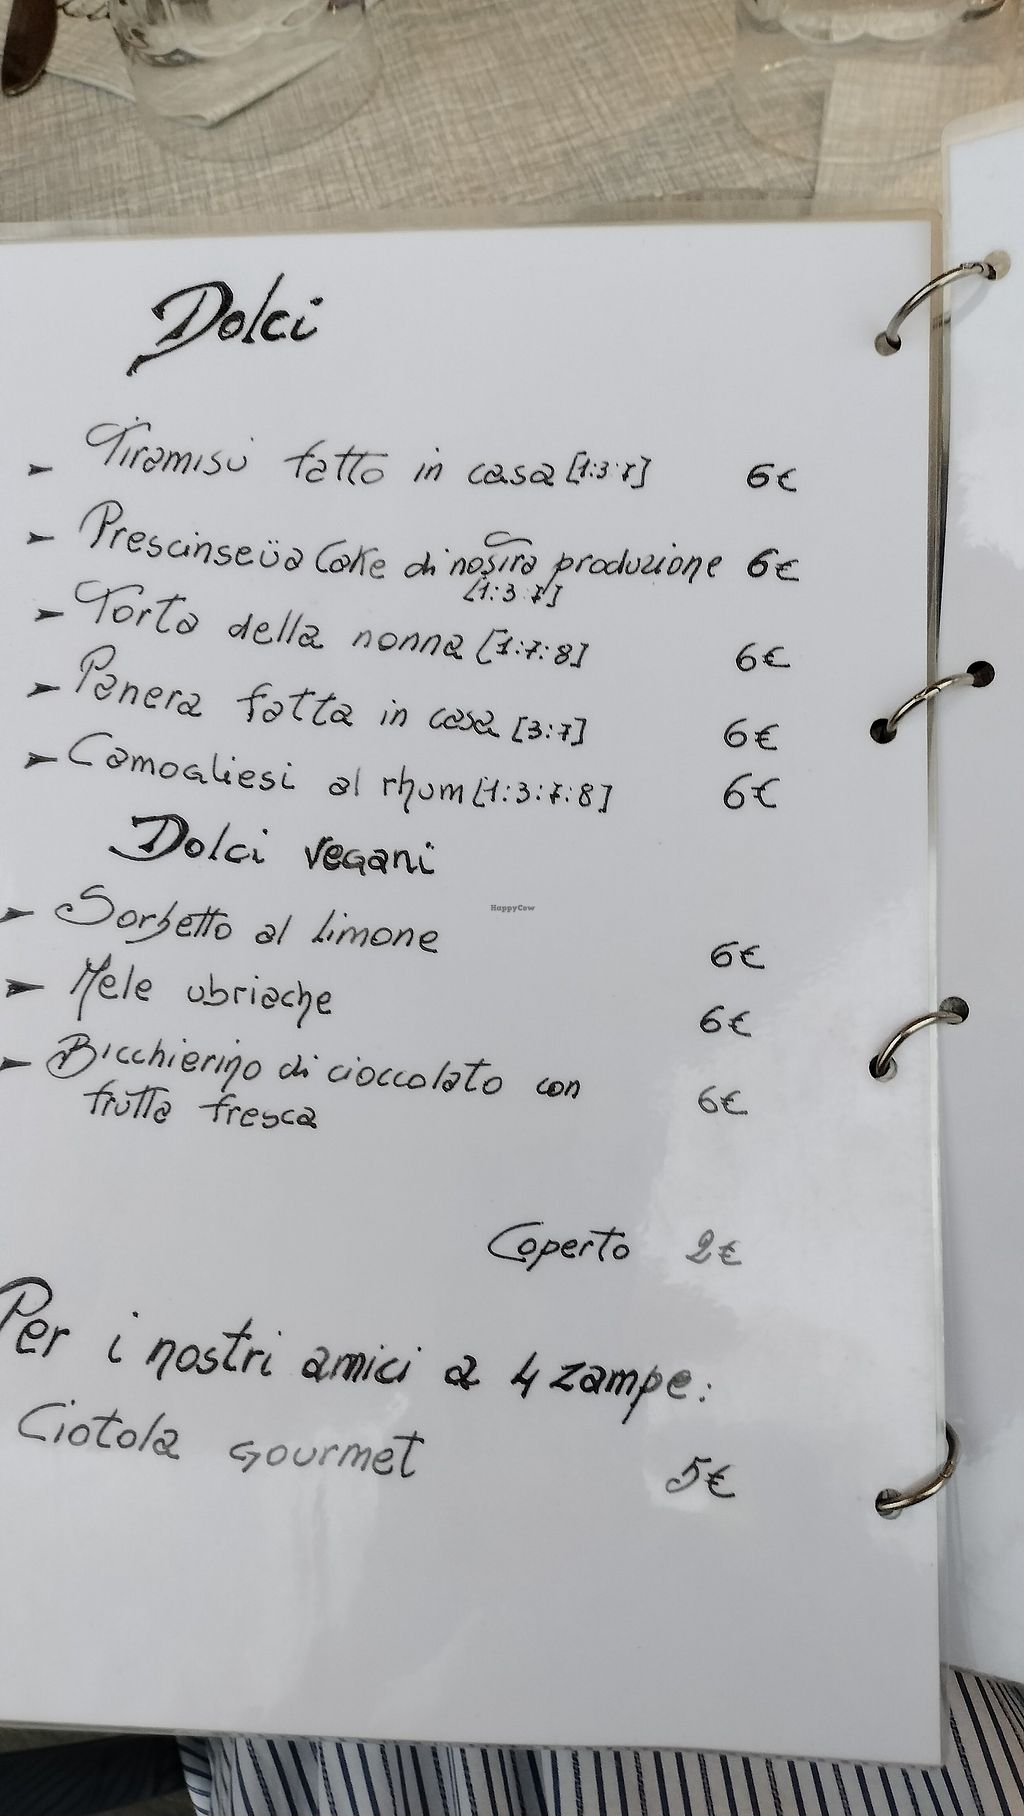 Dolci
Tiramisù fatto in casa [1:3:7] 6€
Prescinseüa Cake di nostra produzione 6€
[1:3:7]
Torta della nonna [1:7:8] 6€
Panera fatta in casa [3:7] 6€
Camogliesi al rhum [1:3:7:8] 6€
Dolci vegani
Sorbetto al limone 6€
HappyCow
Mele ubriache 6€
Bicchierino di cioccolato con
frutta fresca 6€
Coperto 2€
Per i nostri amici a 4 zampe:
Ciotola gourmet 5€